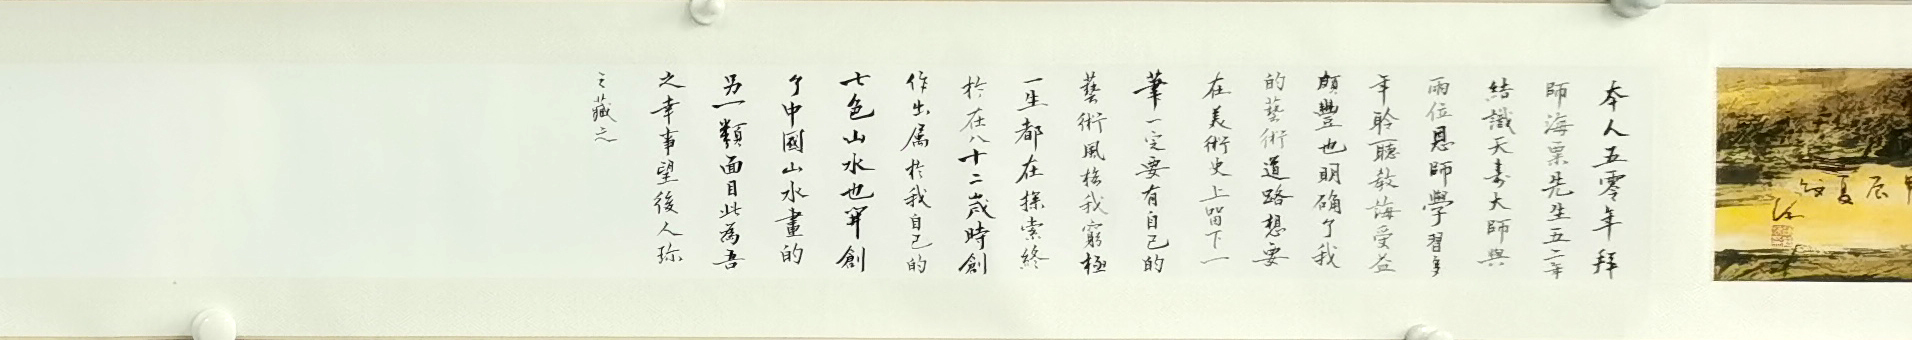 甲
辰
夏
本人五零年拜
師海粟先生五二年
結識天壽大師與
兩位恩師學習多
年聆聽教誨受益
頗豐也明确了我
的藝術道路想要
在美術史上留下一
筆一定要有自己的
藝術風格我窮極
一生都在探索終
於在八十二歲時創
作出属於我自己的
七色山水也開創
了中國山水畫的
另一類面目此為吾
之幸事望後人珎
之藏之